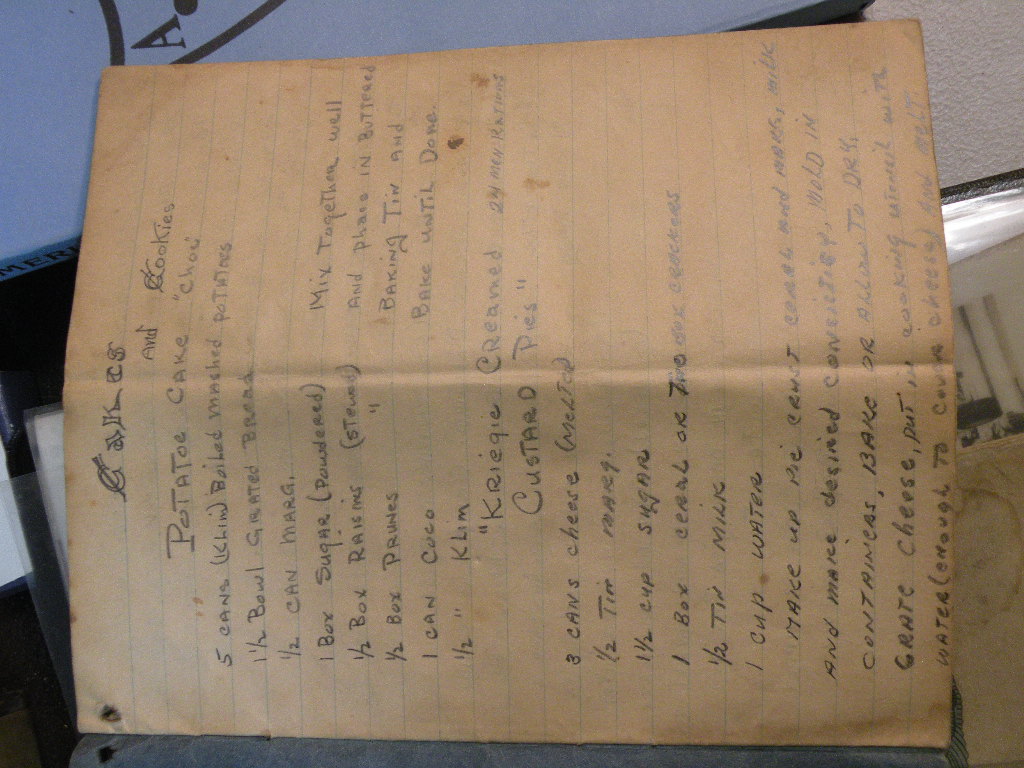 Cakes
And Cookies
Potatoe Cake "Chow"
5 cans (Klim) Boiled mashed potatoes
1 1/2 Bowl Grated Bread
1/2 can marg.
1 Box Sugar (Powdered)
1/2 Box Raisins (stewed)
1/2 Box Prunes "
1 can Coco
1/2 " Klim
Mix Together well
And place in Buttered
Baking Tin and
Bake until Done.
"Kriegie Creamed 24 men Rations
Custard Pies"
3 cans cheese (melted)
1/2 Tin marg.
1 1/2 cup sugar
1 Box cereal or Two box crackers
1/2 Tin milk
1 cup water
Make up pie crust cereal and marg, milk
and make desired consistiy. Mold in
containers, bake or allow to dry.
Grate cheese, put in cooking utensil with
water (enough to cover cheese) and melt
A.
MERI